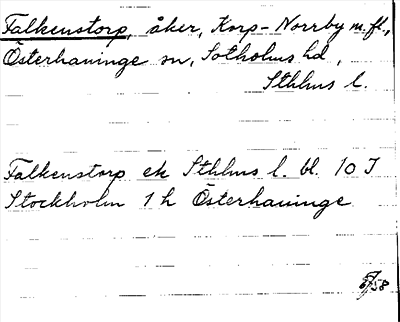 Falkenstorp, åker, Korp-Norrby m.fl.,
Österhaninge sn, Sotholms hd,
Sthlms l.
Falkenstorp ek Sthlms l. bl. 10 I
Stockholm 1 h Österhaninge